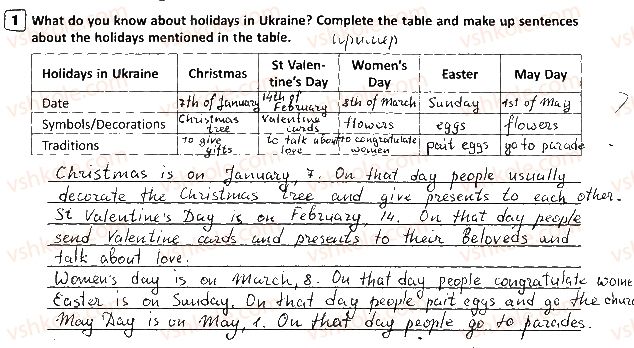 1 What do you know about holidays in Ukraine? Complete the table and make up sentences
about the holidays mentioned in the table. пример
Holidays in Ukraine Christmas St Valen-tine's Day Women's Day Easter May Day
Date 7th of January 14th of February 8th of March Sunday 1st of May
Symbols/Decorations Christmas tree Valentine cards flowers eggs flowers
Traditions to give gifts to talk about love to congratulate women pait eggs go to parade
Christmas is on January, 7. On that day people usually
decorate the Christmas tree and give presents to each other.
St Valentine's Day is on February, 14. On that day people
send Valentine cards and presents to their beloveds and
talk about love.
Women's day is on March, 8. On that day people congratulate wome
Easter is on Sunday. On that day people pait eggs and go the churc
May Day is on May, 1. On that day people go to parades.